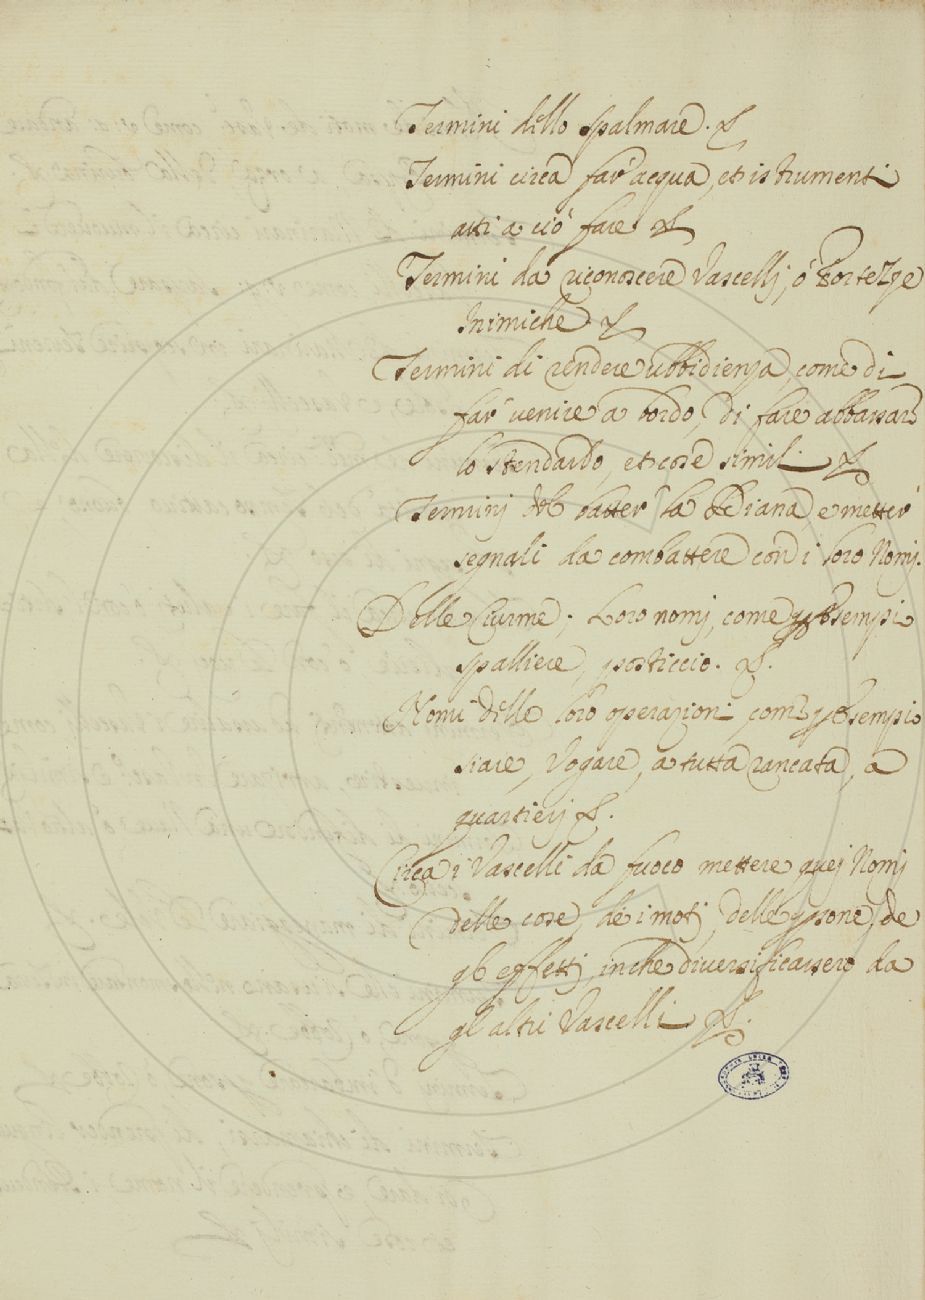 Termini dello spalmare. &
Termini circa far acqua, et istrumenti
atti a ciò fare &
Termini da riconoscere Vascelli, ò Fortezze
Inimiche &
Termini di rendere ubbidienza, come di
far venire a bordo, di fare abbassare
lo stendardo, et cose simili &
Termini del batter la Diana e metter
segnali da combattere con i loro Nomj.
Delle Ciurme; Loro nomj, come p Esempio
spalliere, posticcio. &.
Nomi delle loro operazioni, come p Esempio
siare, Vogare, a tutta rancata, a
quartierj &.
Circa i Vascelli da fuoco mettere quej Nomj
delle cose, de i motj, delle psone, de
gli effettj, inche diversificassero da
gl'altri Vascelli &.